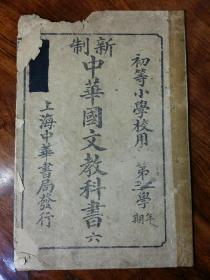 初等小學校用
第三學年期
新制
中華國文教科書 六
上海中華書局發行